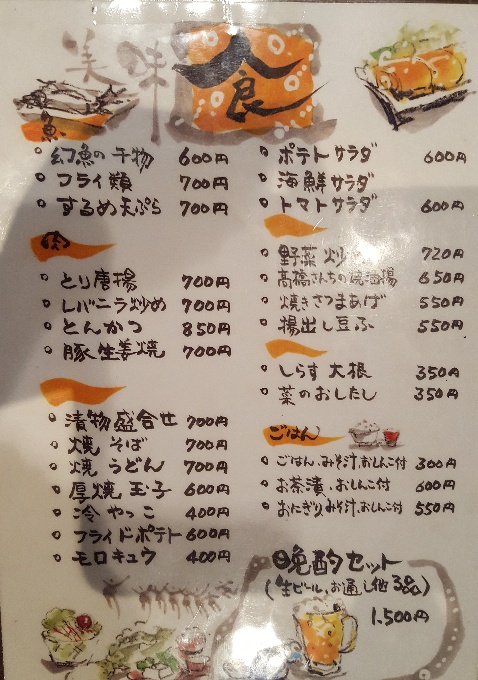 美味
食
魚
幻魚の干物 600円
フライ類 700円
するめ天ぷら 700円
肉
とり唐揚 700円
レバニラ炒め 700円
とんかつ 850円
豚生姜焼 700円
漬物盛合せ 700円
焼そば 700円
焼うどん 700円
厚焼玉子 600円
冷やっこ 400円
フライドポテト 600円
モロキュウ 400円
ポテトサラダ 600円
海鮮サラダ
トマトサラダ 600円
野菜炒め 720円
高橋さんちの焼油揚 650円
焼きさつまあげ 550円
揚出し豆ふ 550円
しらす大根 350円
菜のおしたし 350円
ごはん
ごはん、みそ汁、おしんこ付 300円
お茶漬、おしんこ付 600円
おにぎりみそ汁、おしんこ付 550円
晩酌セット
(生ビール、お通し他3品)
1,500円